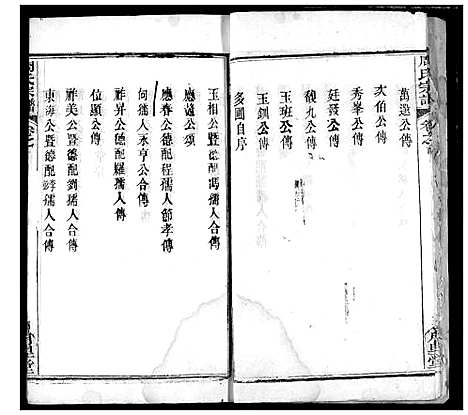 周氏宗譜
萬選公傳
次伯公傳
秀峯公傳
廷發公傳
馥九公傳
玉班公傳
玉釧公傳
多圃自序
玉相公暨德配馮孺人合傳
應遠公頌
應春公德配程孺人節孝傳
何孺人永亨公合傳
祥昇公德配羅孺人合傳
位顯公傳
祥美公暨德配劉孺人合傳
東海公暨德配李孺人合傳
周氏宗譜